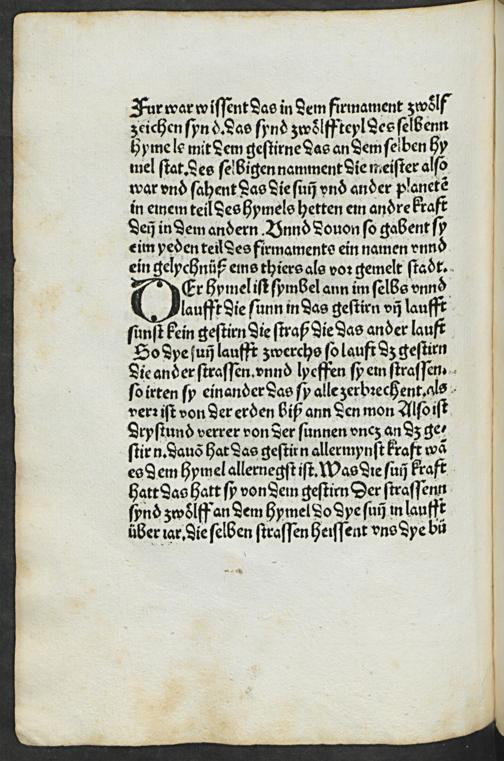 Fur war wissent das in dem firmament zwoͤlf
zeichen synd. das synd zwoͤlff teyl des selbenn
hymels mit dem gestirne das an dem selben hy
mel stat. des selbigen namment die meister also
war vnd sahent das die suñ vnd ander planetẽ
in einem teil des hymels hetten ein andre kraft
deñ in dem andern. Vnnd douon so gabent sy
eim yeden teil des firmaments ein namen vnnd
ein gelychnúß eins thiers als vor gemelt stadt.
DEr hymel ist symbel ann im selbs vnnd
laufft die sunn in das gestirn vñ laufft
sunst kein gestirn die straß die das ander lauft
So dye suñ laufft zwerchs so lauft dz gestirn
die ander strassen. vnnd lyeffen sy ein strassen.
so irten sy einander das sy alle zerbrechent. als
verr ist von der erden biß ann den mon Also ist
drystund verrer von der sunnen vncz an dz ge⸗
stirn. dauõ hat das gestirn allermynst kraft wã
es dem hymel allernegst ist. Was die suñ kraft
hatt das hatt sy von dem gestirn Der strassenn
synd zwoͤlff an dem hymel do dye suñ in laufft
über iar. die selben strassen heissent vns dye bü